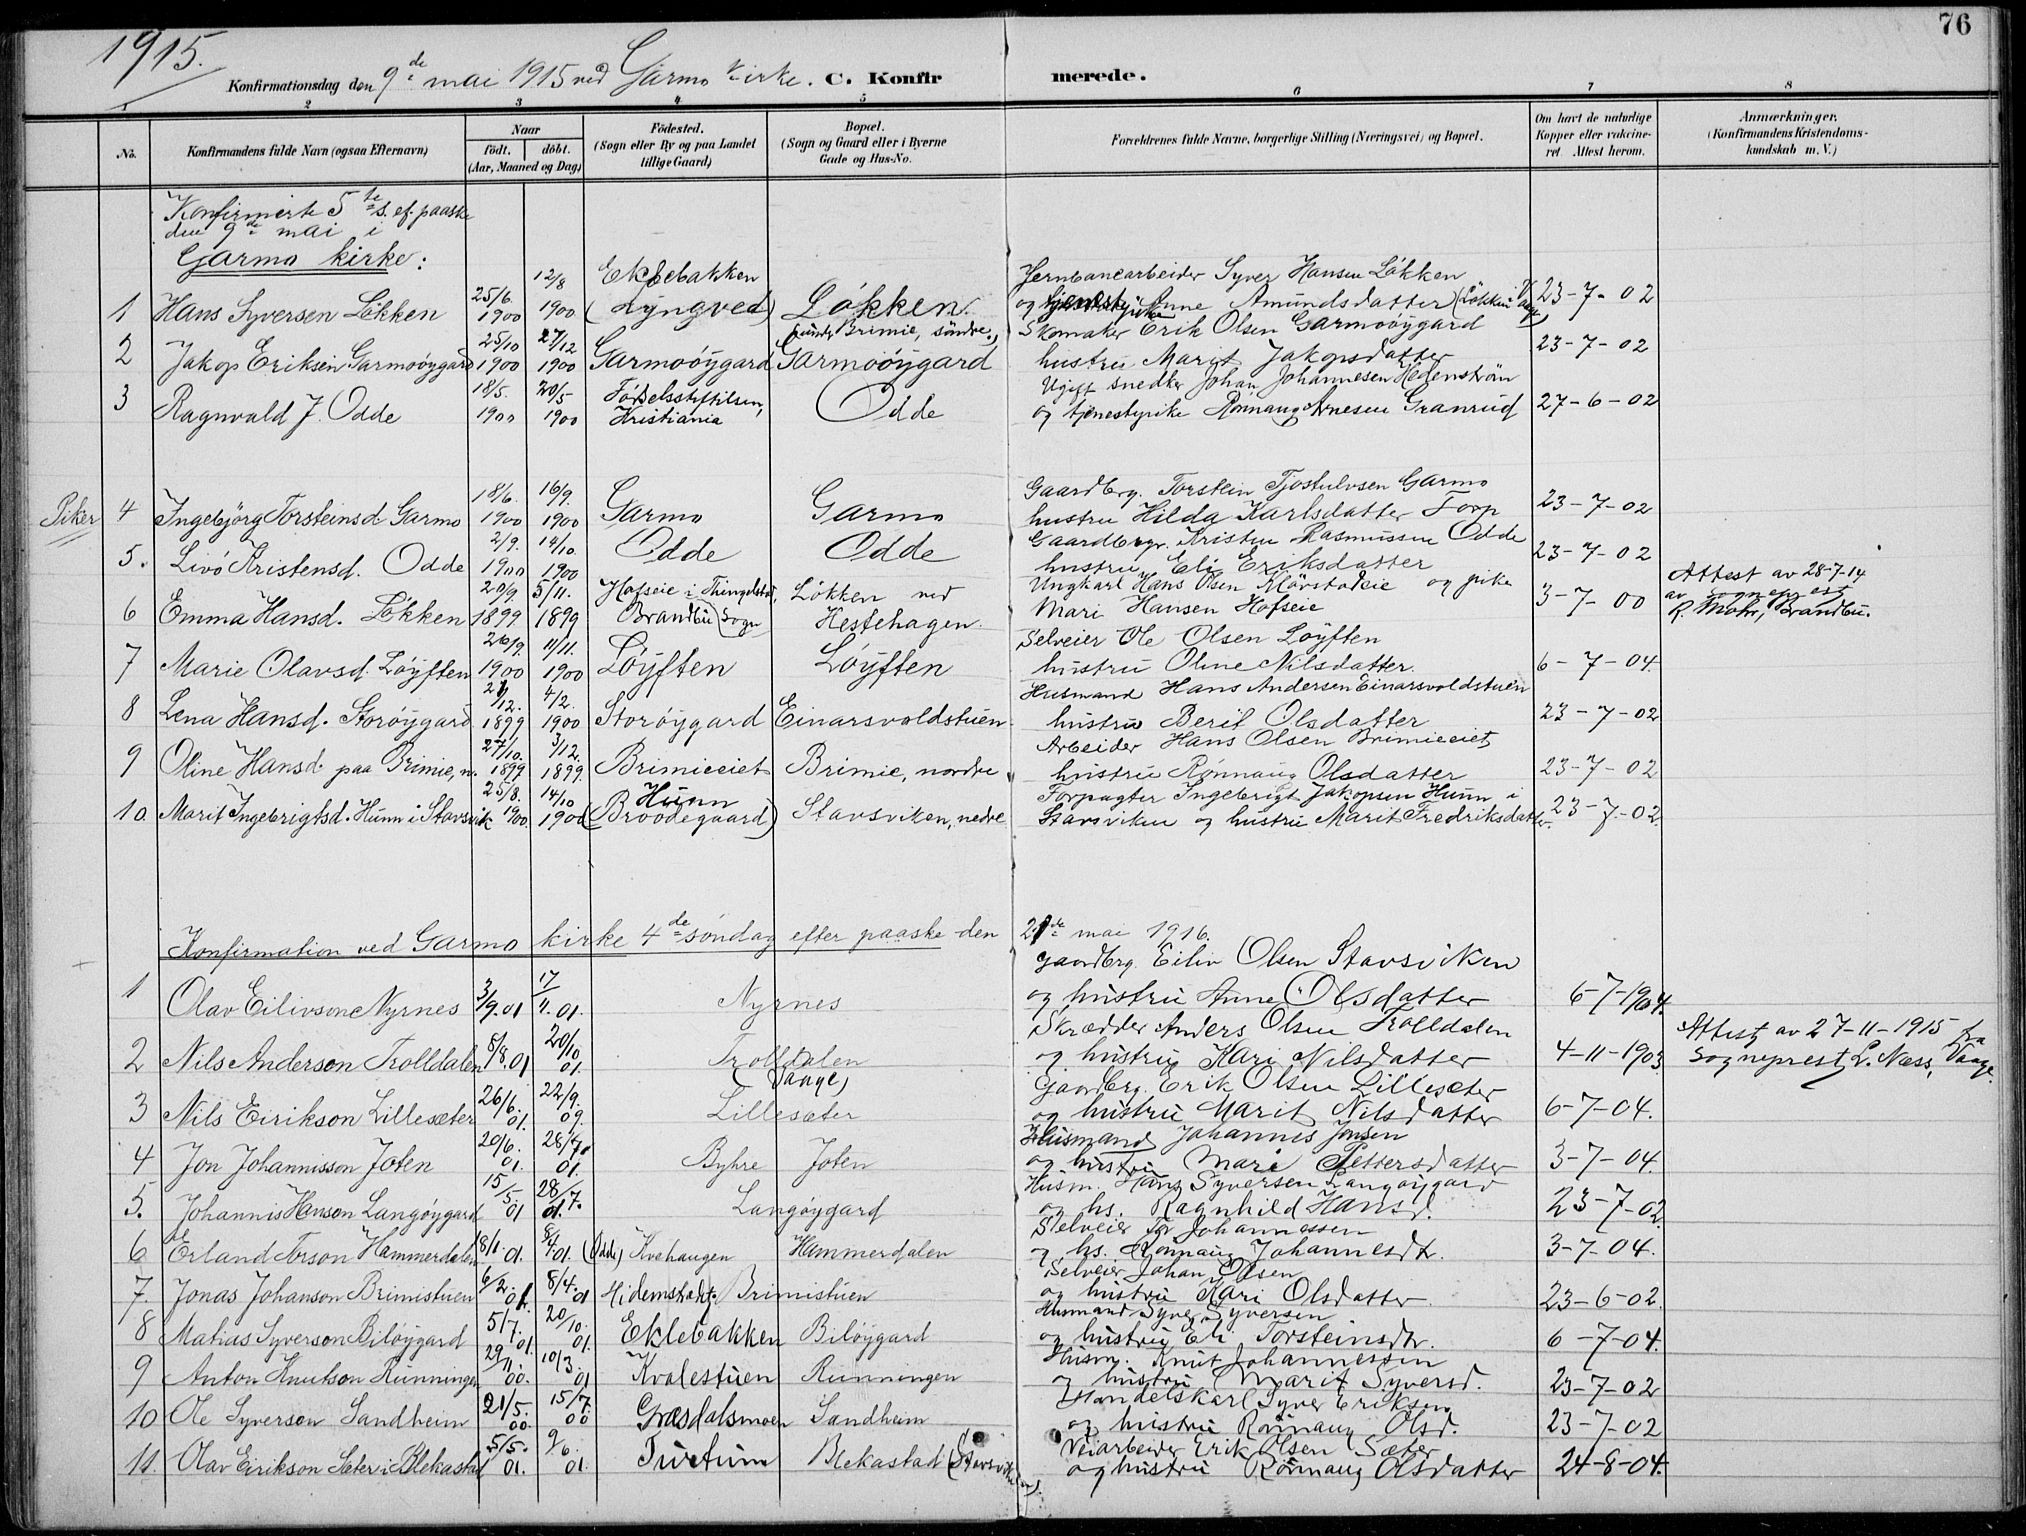 76
1915.
Konfirmationsdag den 9de mai 1915 ved Garmo kirke. C. Konfir merede.
2 3 4 5 6 7 8
No. Konfirmandens fulde Navn (ogsaa Efternavn) Naar födt. döbt. (Aar, Maaned og Dag) Födested. (Sogn eller By og paa Landet tillige Gaard) Bopæl. (Sogn og Gaard eller i Byerne Gade og Hus-No. Forældrenes fulde Navne, borgerlige Stilling (Næringsvei) og Bopæl. Om havt de naturlige Kopper eller vakcineret. Attest herom. Anmærkninger. (Konfirmandens Kristendomskundskab m. V.)
Konfirmerte 5te s. ef. paaske
den 9de mai i
Garmo kirke:
1 Hans Syversen Lökken 25/6 1900 12/8 1900 Eklebakken (Lyngved) Lökken (under Brimie, söndre.) Jernbanearbeider Syver Hansen Lökken
og Anne Amundsdatter (Lökken 23-7-02
2 Jakop Eriksen Garmoöygard 25/10 1900 27/12 1900 Garmoöygard Garmoöygard Skomaker Erik Olsen Garmoöygard
hustru Marit Jakopsdatter 23-7-02
3 Ragnvald J. Odde 18/5. 1900 20/5 1900 Födselsstiftelsen, Kristiania Odde Ugift snedker Johan Johannesen Hedenström
og tjenestepike Rönnaug Arnesen Granrud 27-6-02
Piker 4 Ingebjörg Torsteinsd Garmo 18/6. 1900 16/9. 1900 Garmo Garmo Gaardbrg. Torstein Tjostulvsen Garmo
hustru Hilda Karlsdatter Forp 23-7-02
5. Livö Kristensd. Odde 2/9. 1900 14/10. 1900 Odde Odde Gaardbrgr. Kristen Rasmussen Odde
hustru Eli Eriksdatter 23-7-02
6 Emma Hansd. Lökken 20/9 1899 5/11. 1899 Hofseie i Thingelstad, Brandbu (Sogn Lökken ved Hestehagen. Ungkarl Hans Olsen Klövstadeie og pike
Mari Hansen Hofseie 3-7-00 Attest av 28-7-14
av sogneprest
R. Mohr, Brandbu.
7 Marie Olavsd. Löyften 26/9. 1900 11/11. 1900 Löyften Löyften Selveier Ole Olsen Löyften
hustru Oline Nilsdatter. 6-7-04.
8 Lena Hansd. Storöygard 21/12. 1899 4/2. 1900 Storöygard Einarsvoldstuen Husmand Hans Andersen Einarsvoldstuen
hustru Berit Olsdatter 23-7-02
9 Oline Hansd. paa Brimie, n. 27/10. 1899 3/12. 1899. Brimieeiet Brimie, nordre Arbeider Hans Olsen Brimieeiet
hustru Rönnaug Olsdatter 23-7-02
10. Marit Ingebrigtsd. Hunn i Stavsvik 25/8. 1900. 14/10 1900 Hunn (Broodegaard) Stavsviken, nedre Forpagter Ingebrigt Jakopsen Hunn i
Stavsviken og hustru Marit Fredriksdatter. 23-7-02.
Konfirmation ved Garmo kirke 4de söndag efter paaske den 21de mai 1916.
1 Olav Eilivson Nyrnes 3/9. 01 17/11. 01. Nyrnes Gaardbrg. Eiliv Olsen Stavsviken
og hustru Anne Olsdatter 6-7-1904.
2 Nils Anderson Trolldalen 8/8. 01 20/10. 01. Trolldalen (Vaage) Skrædder Anders Olsen Trolldalen
og hustru Kari Nilsdatter 4-11-1903 Attest av 27-11-1915 fra
Sogneprest L. Næss, Vaage.
3 Nils Eirikson Lillesæter 26/6. 01. 22/9. 09. Lillesæter Gaardbrg. Erik Olsen Lillesæter
og hustru Marit Nilsdatter 6-7-04.
4 Jon Johannisson Joten 20/6. 01. 28/7. 01. Byhre Joten Husmand Johannes Jonsen
og hustru Mari Pettersdatter 3-7-04.
5. Johannis Hanson Langöygard 15/5. 01 28/7. 01. Langöygard Husm. Hans Syversen Langöygard
og hs. Ragnhild Hansd. 23-7-02.
6 Erland Torson Hammerdalen 18/1. 01. 8/4. 01. (Odde) Kvehaugen Hammerdalen Selveier Tor Johannessen
og hs. Rönnaug Johannesdtr. 3-7-04.
7. Jonas Johanson Brimistuen 6/2. 01. 8/4. 01 Brimistuen Selveier Johan Olsen
og hustru Kari Olsdatter. 23-6-02.
8 Matias Syverson Bilöygard 5/7. 01. 20/10. 01. Eklebakken Bilöygard Husmand Syver Syversen
og hustru Eli Torsteinsdtr. 6-7-04.
9 Anton Knutson Runningen 29/11. 00. 10/3. 01 Kvalestuen Runningen Husm. Knut Johannessen
og hustru Marit Syversd. 23-7-02
10 Ole Syverson Sandheim 21/5. 00. 15/7. 00 Græsdalsmoen Sandheim Handelskarl Syver Eriksen
og hustru Rönnaug Olsd. 23-7-02
11. Olav Eirikson Sæter i Blekastad 5/5. 01. 9/6. 01. Turtum Blekastad (Stavsviken). Veiarbeider Erik Olsen Sæter
og hustru Rönnaug Olsdatter 24-8-04.